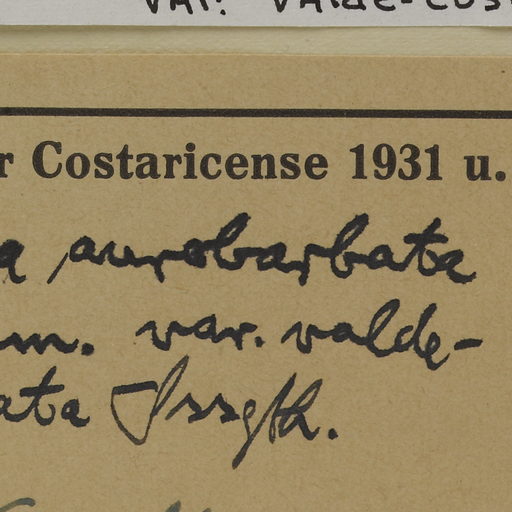 var. valde-cost
r Costaricense 1931 u.
a aurobarbata
m. var. valde-
ata Issgth.